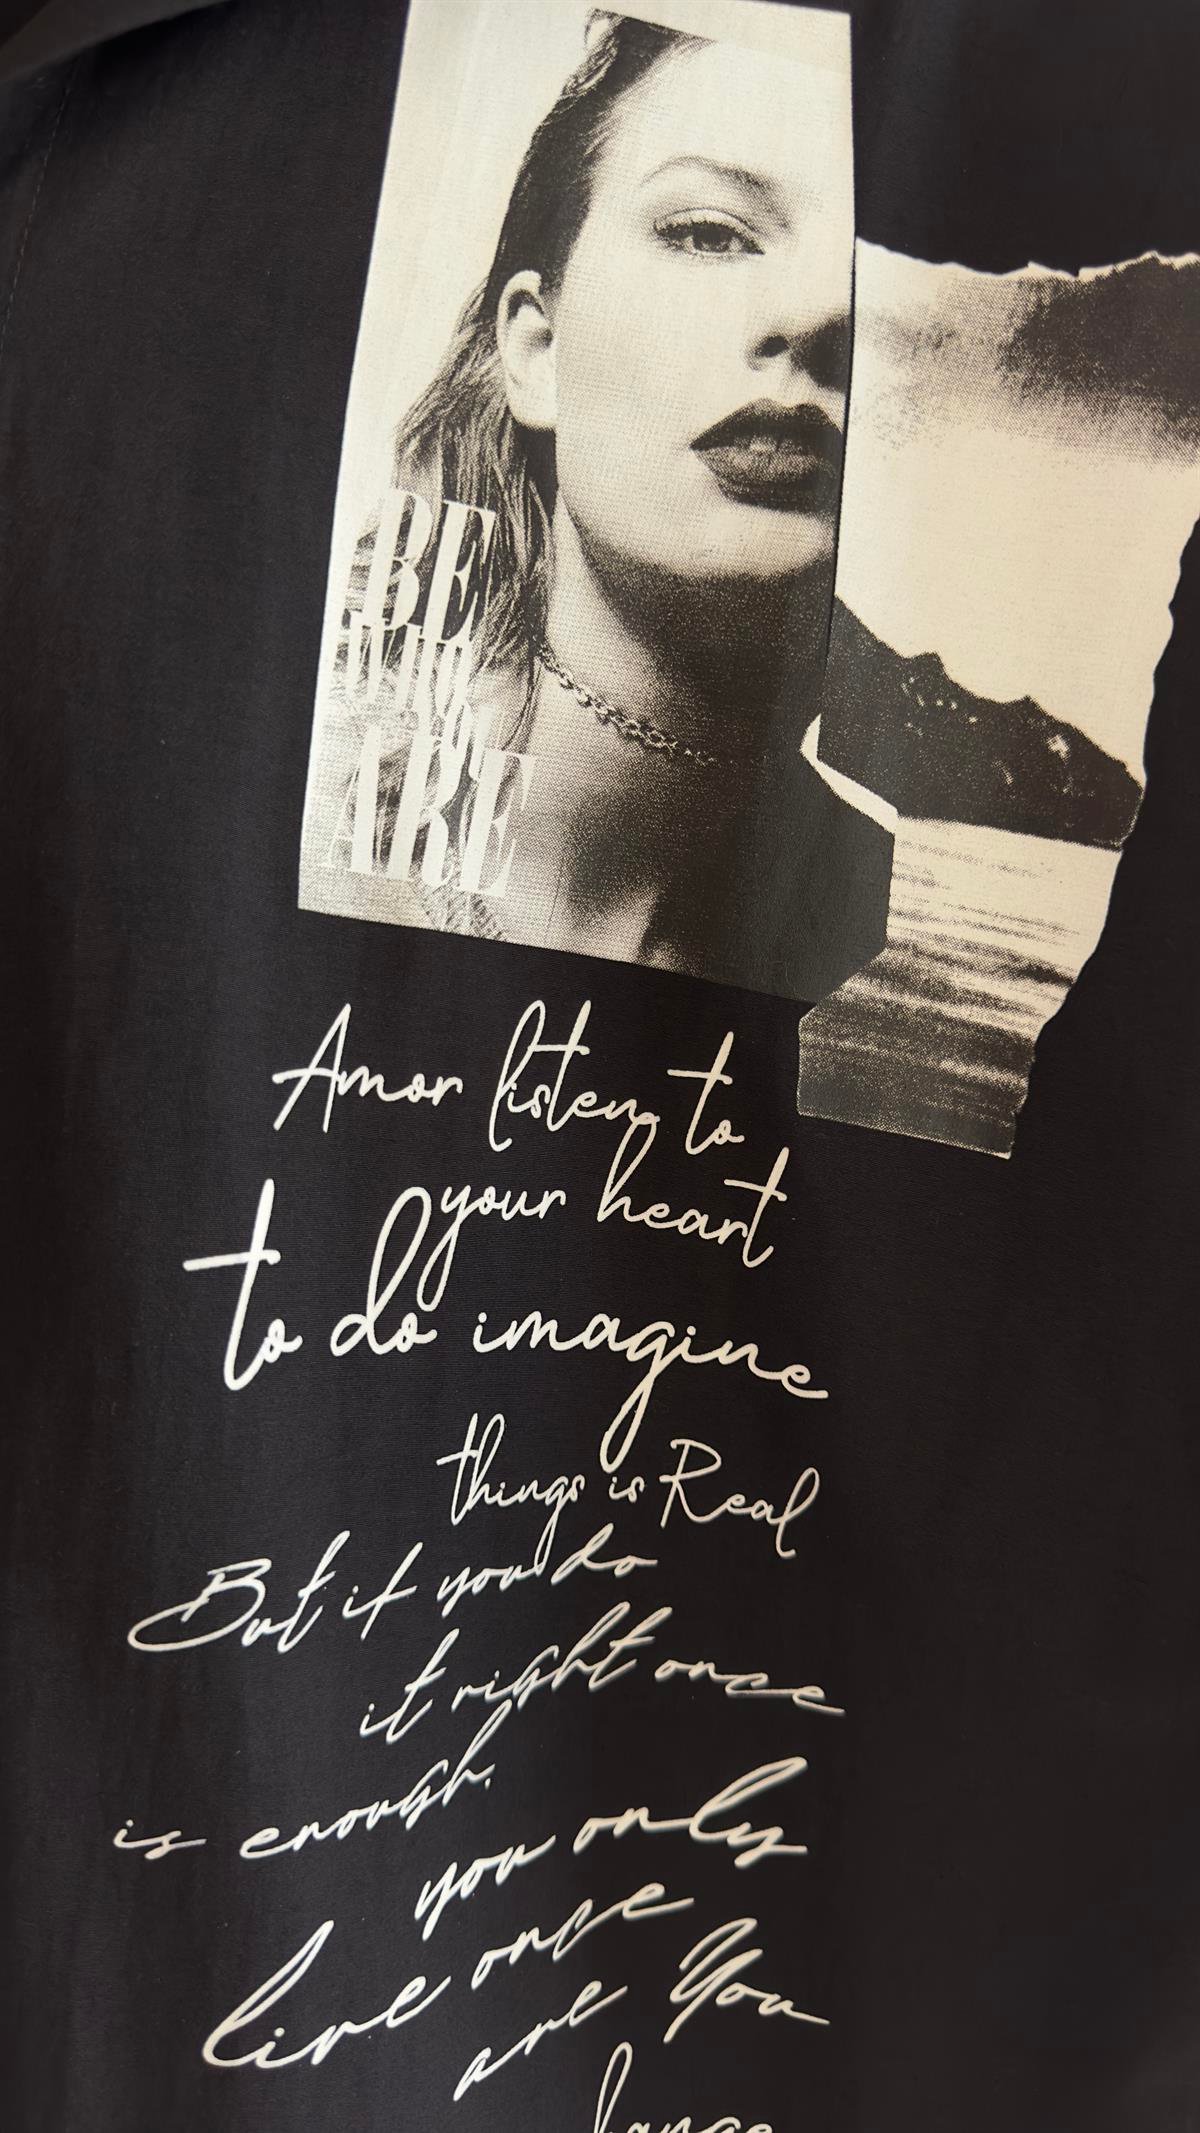 BE
WHO
ARE
Amor listen to
your heart
to do imagine
things is Real
But if you do
it right once
is enough.
you only
live once
are You